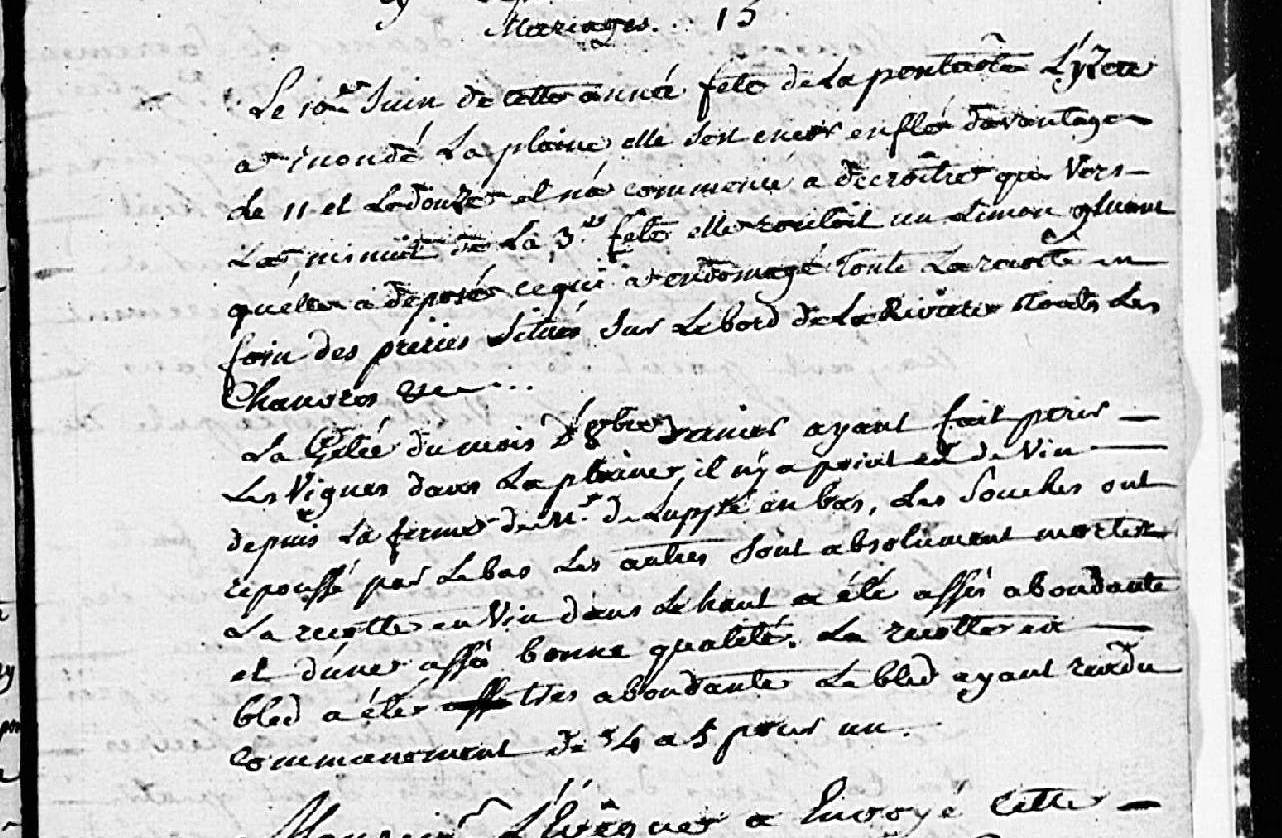 Mariages. 15
Le 10e Juin de cette année fête de la pentecôte L'yzere
a inondé La plaine, elle s'est encor enflée davantage
Le 11 et Ledouze et n'a commencé a decroître que vers
Les minuit de La 3e fête elle rouloit un Limon gluant
qu'elle a deposé ce qui a endomagé toute La recolte en
foin des prairies situés sur Le bord de La Riviere & touts Les
Chanvres &c...
La Gelée du mois d'8bre dernier ayant fait perir
Les Vignes dans La plaine, il n'y a point eu de Vin
depuis La ferme de Mr. de Luppé en bas, Les Souches ont
repoussé par Lebas Les autres sont absolument mortes
La recolte en Vin dans Le haut a été assés abondante
et d'une assés bonne qualité. La recolte en
bled a été tres abondante Le bled ayant rendu
Communement de 4 a 5 pour un.
L'Evêque a Envoyé Cette